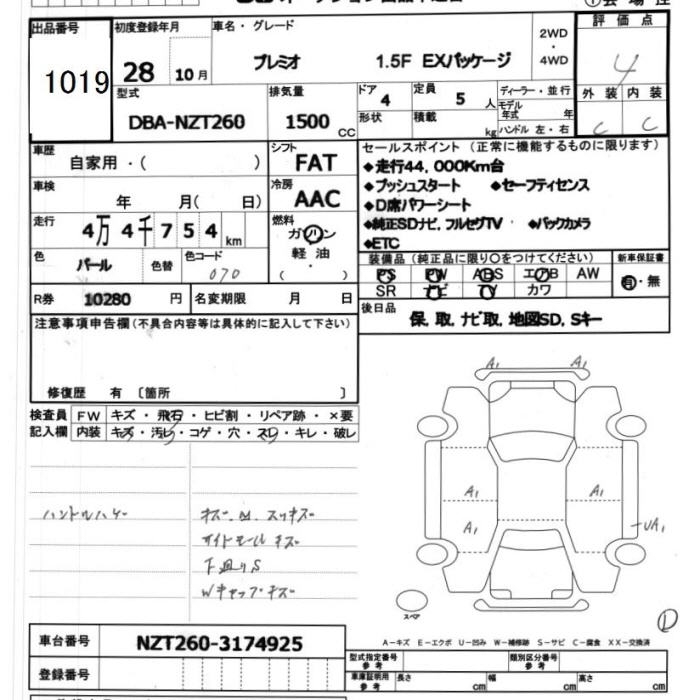 出品番号
1019
初度登録年月
28 10月
車名・グレード
プレミオ 1.5F EXパッケージ
2WD
・
4WD
評価点
4
外装 内装
C C
型式
DBA-NZT260
排気量
1500 CC
ドア
4
定員
5 人
形状
積載
kg
ディーラー・並行
モデル
年式 年
ハンドル 左・右
車歴
自家用・( )
シフト
FAT
車検
年 月( 日)
冷房
AAC
走行
4万4千754 km
燃料
ガソリン
軽油
( ・ )
色
パール
色替
色コード
070
R券 10280 円
名変期限 月 日
セールスポイント (正常に機能するものに限ります)
◆走行44,000Km台
◆プッシュスタート ◆セーフティセンス
◆D席パワーシート
◆純正SDナビ,フルセグTV ◆バックカメラ
◆ETC
装備品 (純正品に限り○をつけてください)
PS PW ABS エアB AW
SR ナビ TV カワ
新車保証書
有・無
後日品
保,取,ナビ取,地図SD,Sキー
注意事項申告欄(不具合内容等は具体的に記入して下さい)
修復歴 有 〔箇所 〕
検査員
記入欄
FW キズ・飛石・ヒビ割・リペア跡・×要
内装 キズ・汚レ・コゲ・穴・スレ・キレ・破レ
ハンドルハゲ
下廻りS
Wキャップキズ
A1 A1
A1 A1
A1
UA1
スペア
D
A-キズ E-エクボ U-凹み W-補修跡 S-サビ C-腐食 XX-交換済
車台番号
NZT260-3174925
登録番号
型式指定番号
参考
類別区分番号
参考
車庫証明用
参考
長さ cm
幅 cm
高さ cm